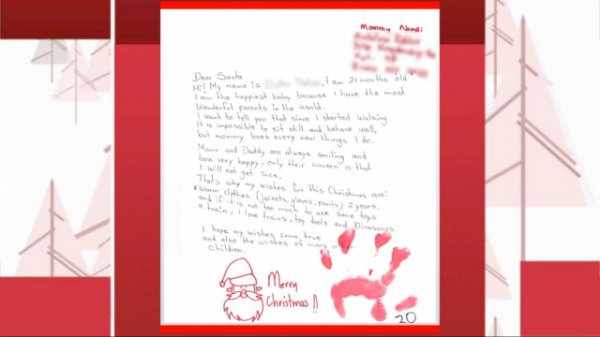 Mommy Name:
Dear Santa
Hi! My name is , I am 21 months old
I am the happiest baby because I have the most
Wonderful parents in the world.
I want to tell you that since I started walking
It is impossible to sit still and behave well,
but mommy loves every new things I do.
Mom and Daddy are always smiling and
look very happy, only their concern is that
I will not get sick.
That's why my wishes for this Christmas are:
Warm clothes (jackets, gloves, pants) 2 years.
and if it is not too much to ask some toys
a train, I love trains, toy tools and Dinosaurs.
I hope my wishes come true
and also the wishes of many
children.
Merry
Christmas!!
20